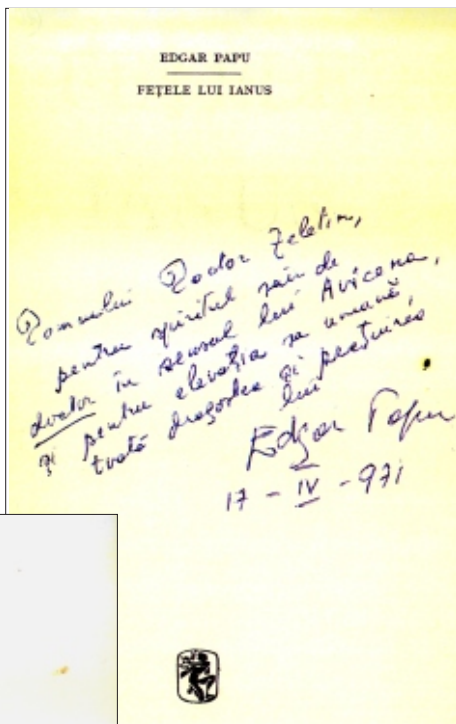 EDGAR PAPU
FEȚELE LUI IANUS
Domnului Doctor Zeletin,
pentru spiritul său de
doctor în sensul lui Avicena,
și pentru elevația sa umană,
toată dragostea și prețuirea
lui
Edgar Papu
17 - IV - 971